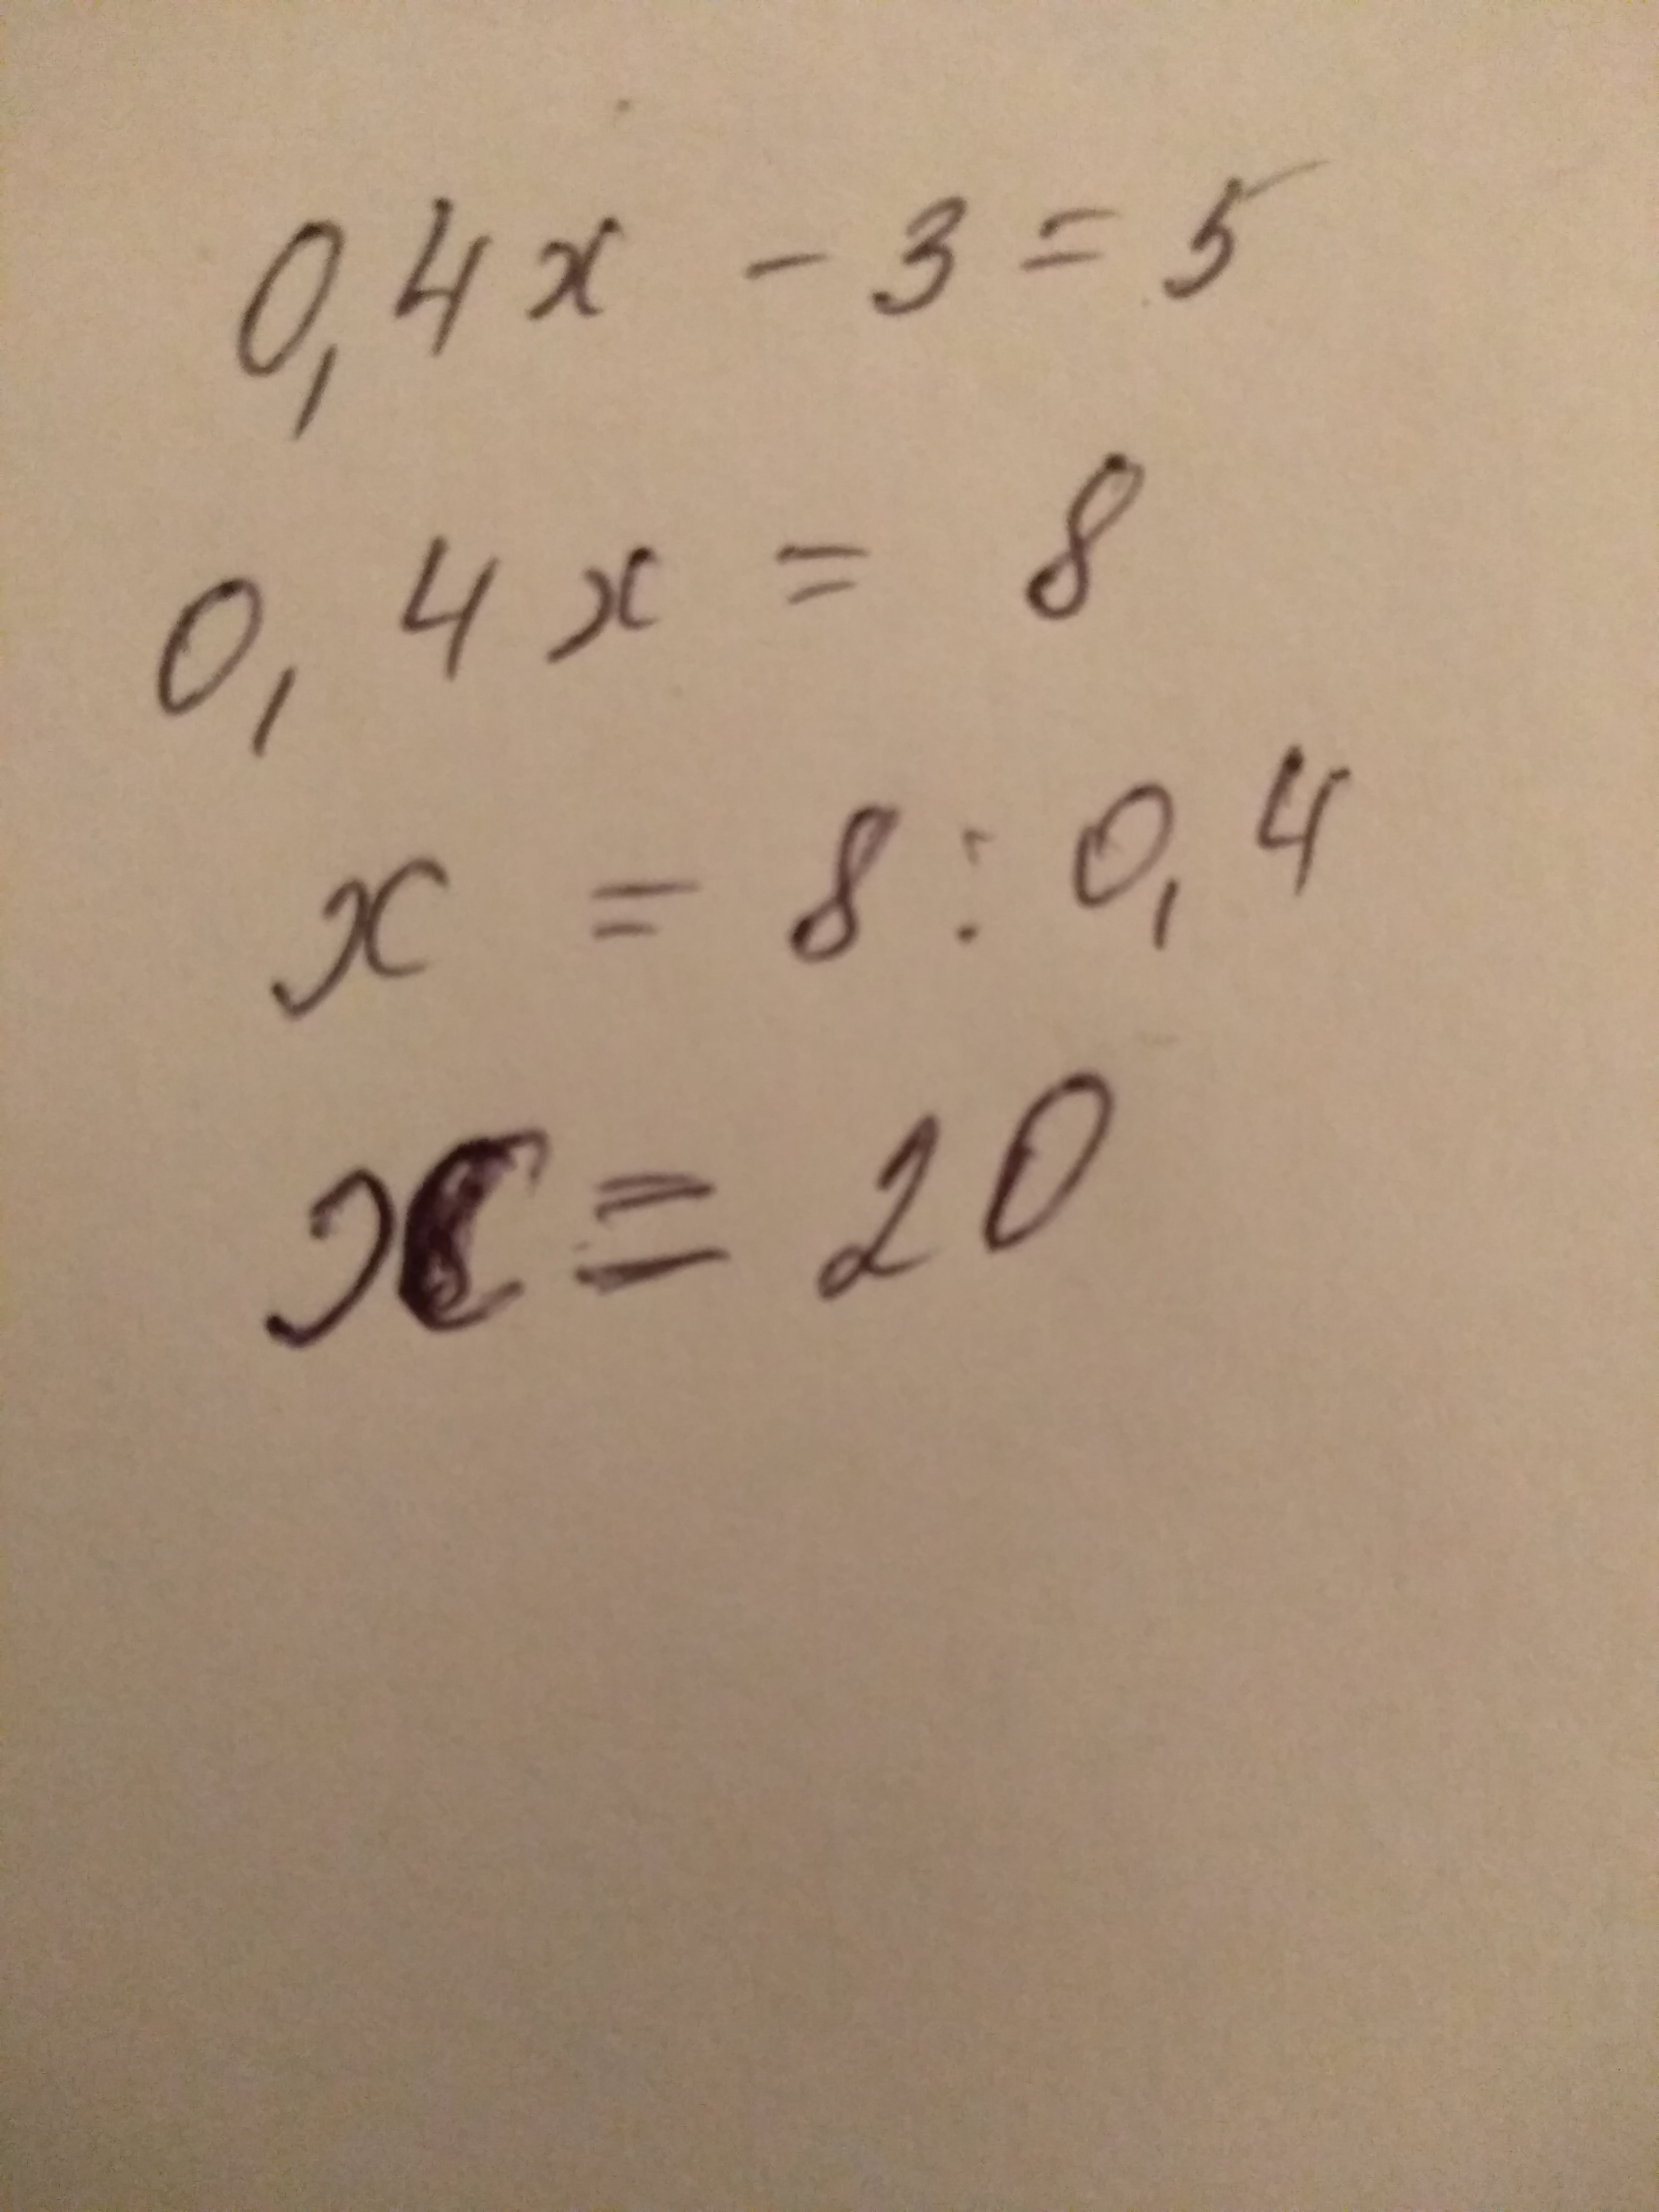 0,4x - 3 = 5
0,4x = 8
x = 8 : 0,4
x = 20